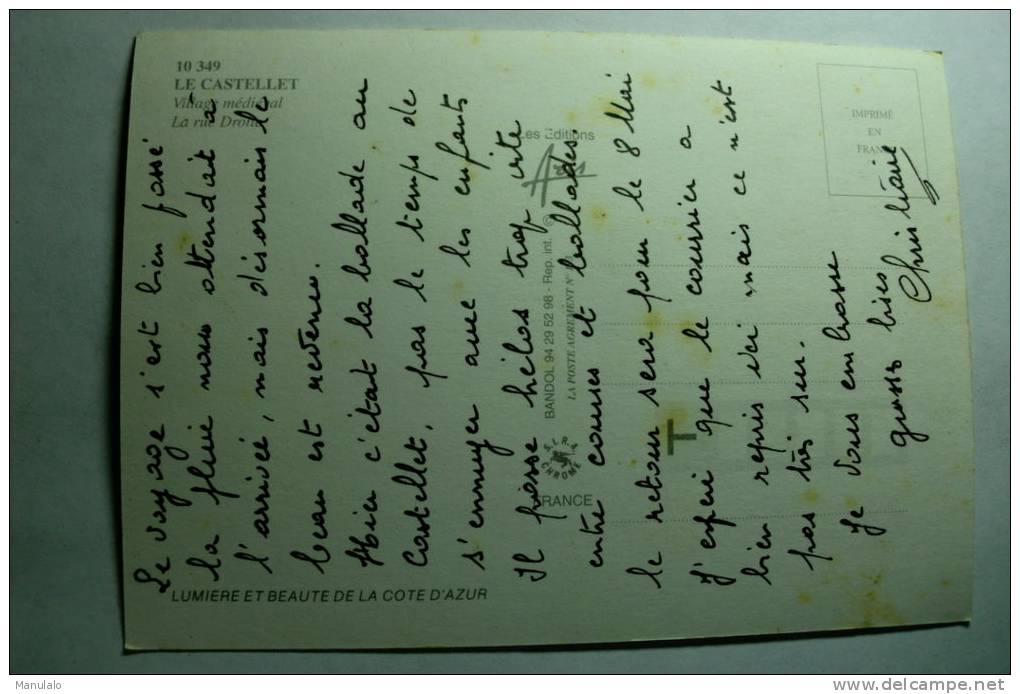 10 349
LE CASTELLET
Village médiéval
La rue Droite
IMPRIMÉ
EN
FRANCE
Les Editions
Aris
BANDOL 94 29 52 98 - Rep. int. ©
LA POSTE AGREMENT N°
S.E.R.A.
CHROME
FRANCE
T
LUMIERE ET BEAUTE DE LA COTE D'AZUR
Le voyage s'est bien passé
la pluie nous attendait à
l'arrivée, mais désormais le
beau est revenu.
Hier c'était la ballade au
Castellet, pas le temps de
s'ennuyer avec les enfants
Il passe hélas trop vite
entre courses et ballades.
le retour sera pour le 8 Mai
J'espère que le courrier a
bien repris ici mais ce n'est
pas très sur.
Je vous embrasse
grosses bises
Christiane
Manulalo
http://www.delcampe.net